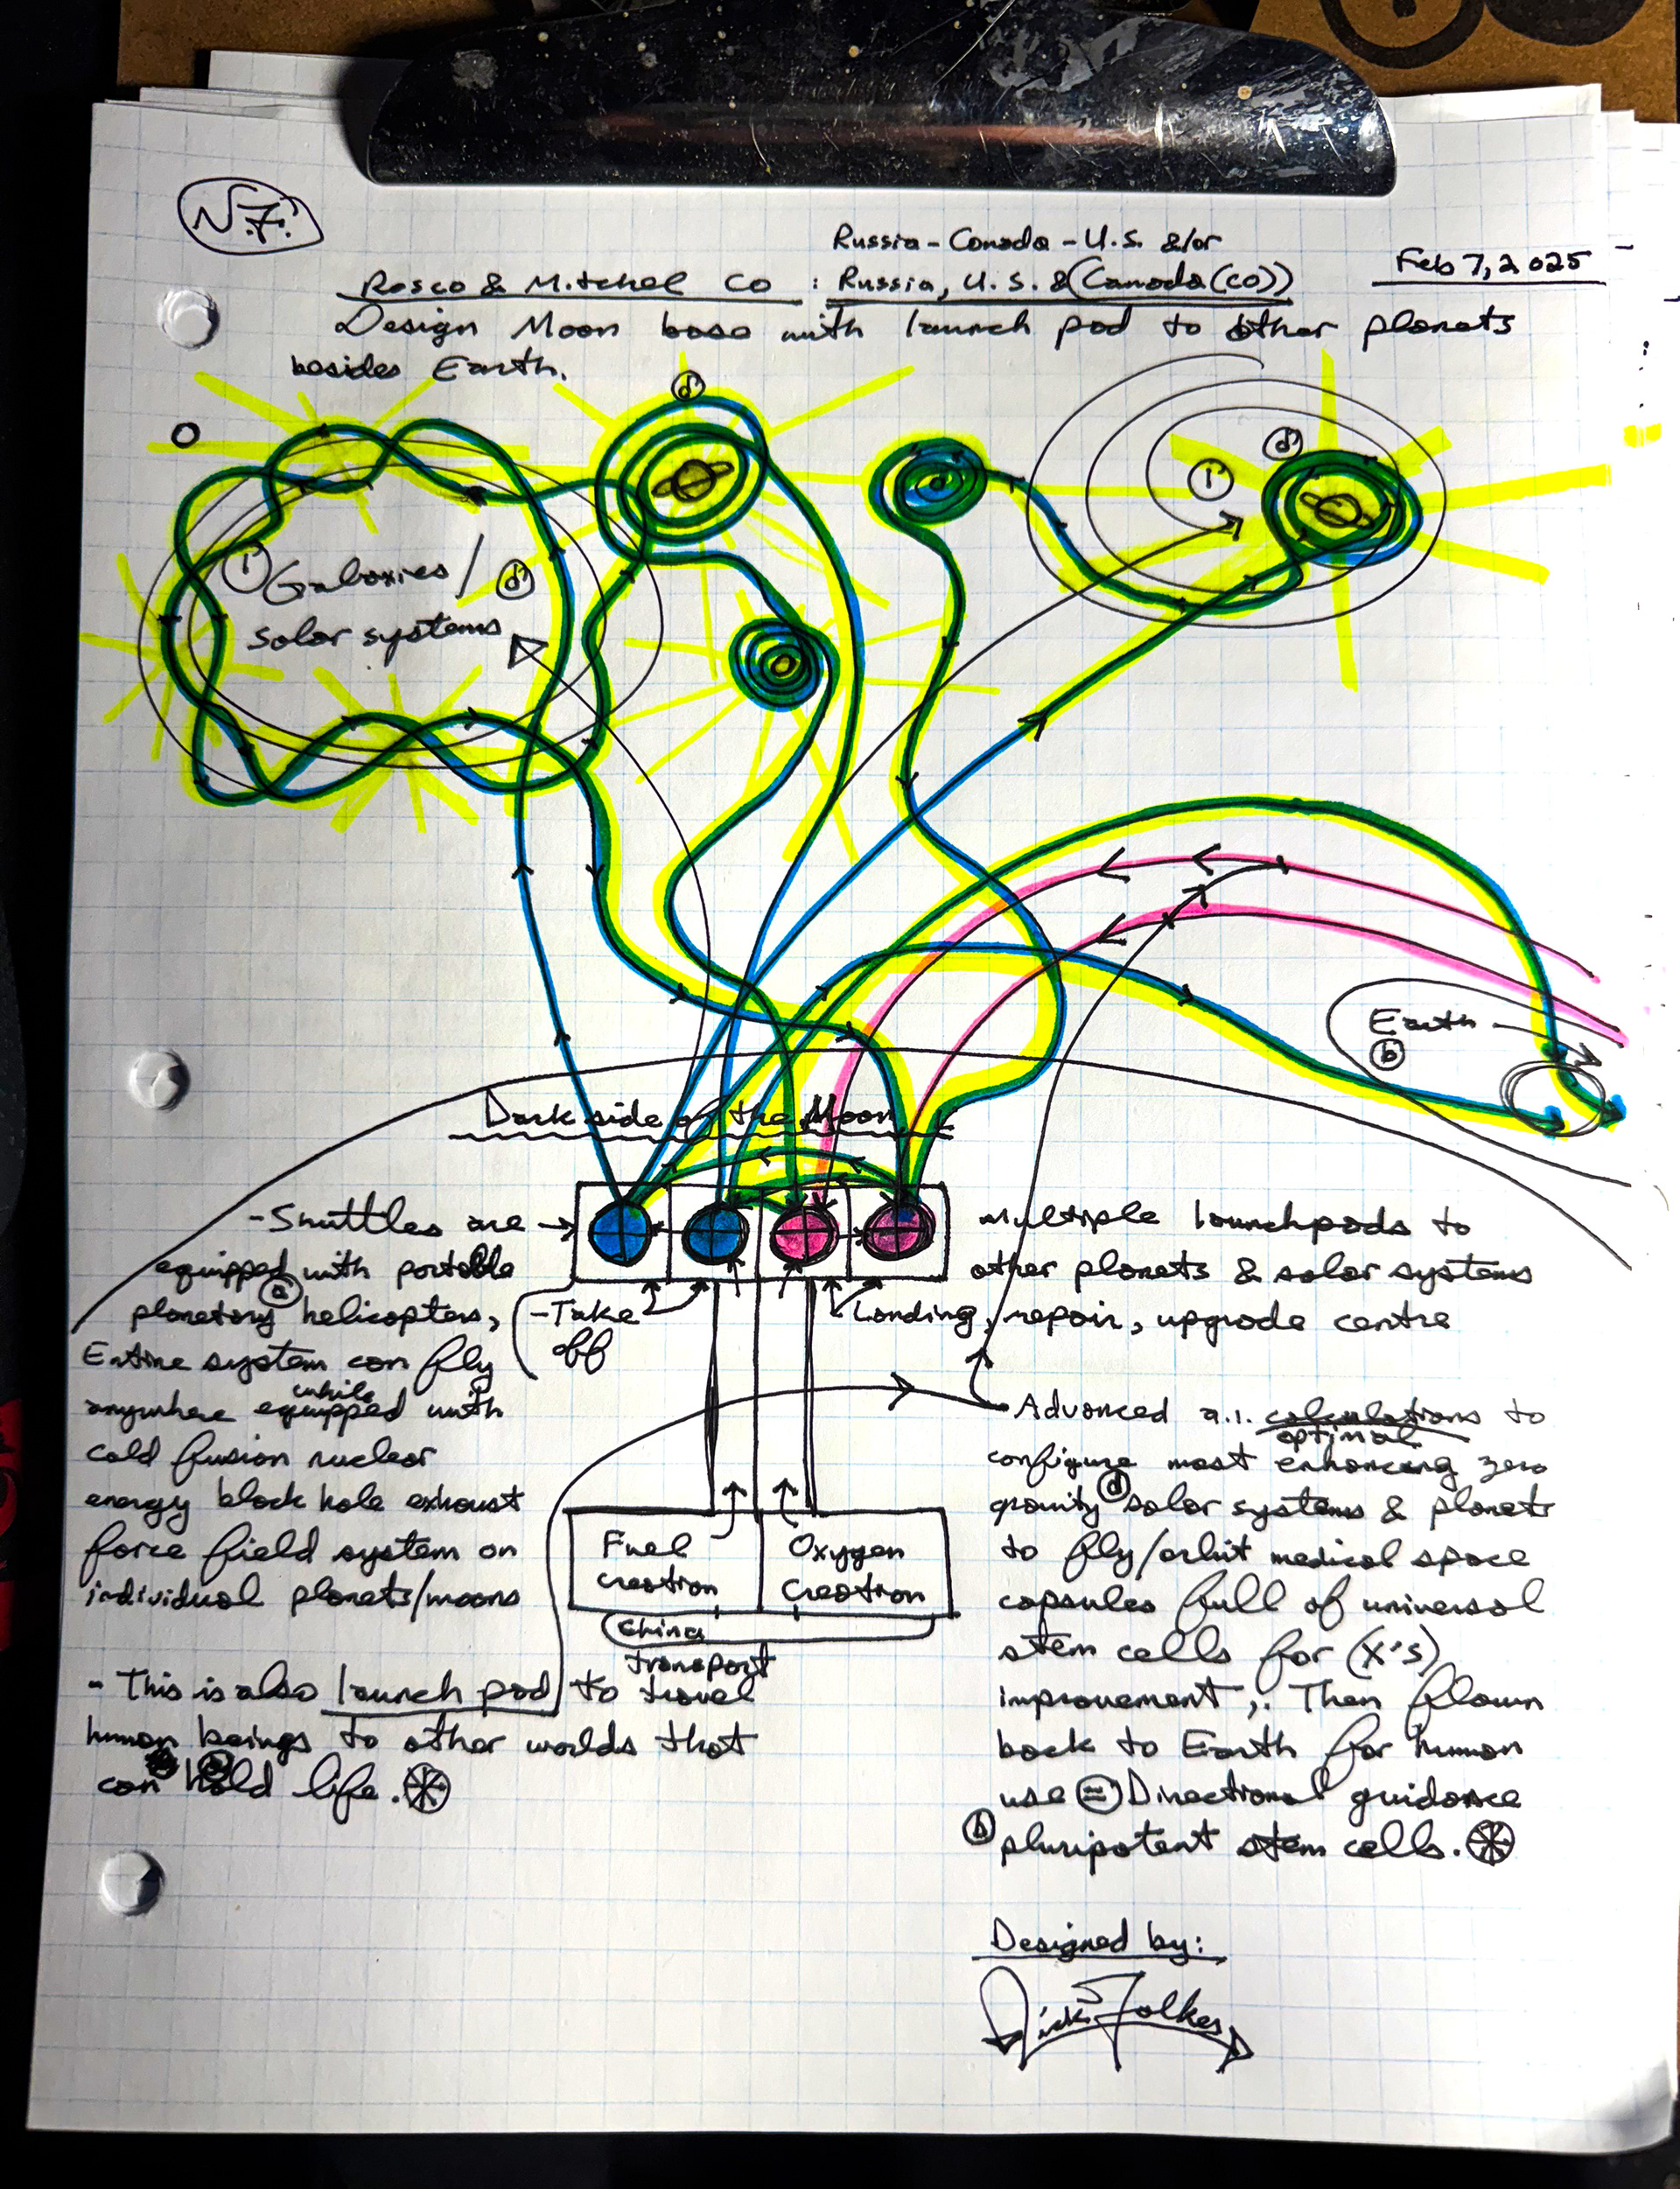 N.7.
Russia - Canada - U.S. &/or
Feb 7, 2025
Rosco & Mitchel Co : Russia, U.S. & (Canada (co))
Design Moon base with launch pad to other planets
besides Earth.
d
d
1
1 Galaxies / d
solar systems
Earth
b
Dark side of the Moon
- Shuttles are
equipped with portable
a
planetary helicopters,
Entire system can fly
while
anywhere equipped with
cold fusion nuclear
energy black hole exhaust
force field system on
individual planets/moons
- Take
off
Multiple launchpads to
other planets & solar systems
Landing, repair, upgrade centre
Fuel
creation
Oxygen
creation
China
transport
- This is also launch pad to travel
human beings to other worlds that
can hold life.
Advanced a.i. calculations to
optimal
configure most enhancing zero
gravity d solar systems & planets
to fly/orbit medical space
capsules full of universal
stem cells for (x's)
improvement,. Then flown
back to Earth for human
use = Directional guidance
b pluripotent stem cells.
Designed by: